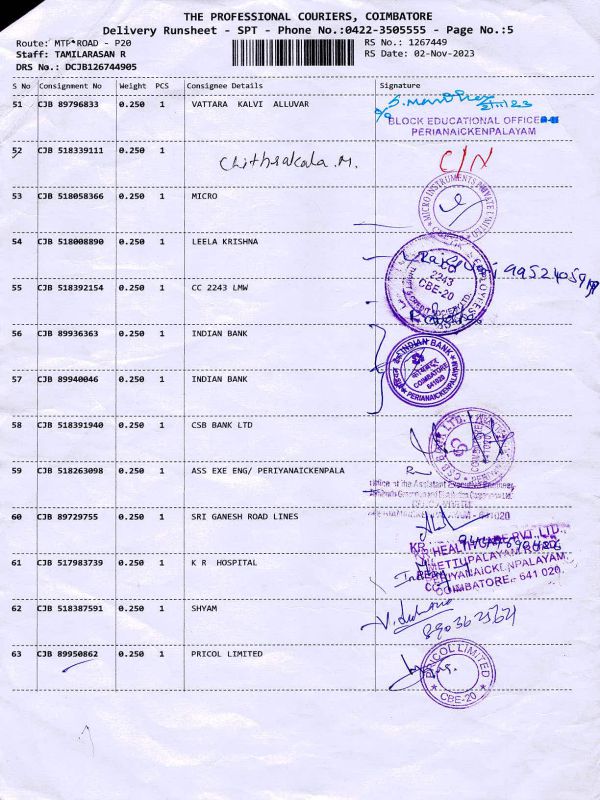 THE PROFESSIONAL COURIERS, COIMBATORE
Delivery Runsheet - SPT - Phone No.:0422-3505555 - Page No.:5
Route: MTP ROAD - P20 RS No.: 1267449
Staff: TAMILARASAN R RS Date: 02-Nov-2023
DRS No.: DCJB126744905
S No Consignment No Weight PCS Consignee Details Signature
51 CJB 89796833 0.250 1 VATTARA KALVI ALLUVAR
BLOCK EDUCATIONAL OFFICE
PERIANAICKENPALAYAM
52 CJB 518339111 0.250 1 Chithrakala.M. C/N
53 CJB 518058366 0.250 1 MICRO
MICRO INSTRUMENTS PRIVATE LIMITED
54 CJB 518008890 0.250 1 LEELA KRISHNA
2243
CBE-20
55 CJB 518392154 0.250 1 CC 2243 LMW
56 CJB 89936363 0.250 1 INDIAN BANK
INDIAN BANK
COIMBATORE
641020
PERIANAICKENPALAYAM
57 CJB 89940046 0.250 1 INDIAN BANK
58 CJB 518391940 0.250 1 CSB BANK LTD
CSB BANK LTD.
59 CJB 518263098 0.250 1 ASS EXE ENG/ PERIYANAICKENPALA
Office of the Assistant Executive Engineer
60 CJB 89729755 0.250 1 SRI GANESH ROAD LINES
61 CJB 517983739 0.250 1 K R HOSPITAL
KR HEALTHCARE PVT. LTD.,
METTUPALAYAM ROAD,
PERIYANAICKENPALAYAM,
COIMBATORE - 641 020.
62 CJB 518387591 0.250 1 SHYAM
8903625621
63 CJB 89950862 0.250 1 PRICOL LIMITED
PRICOL LIMITED
CBE-20